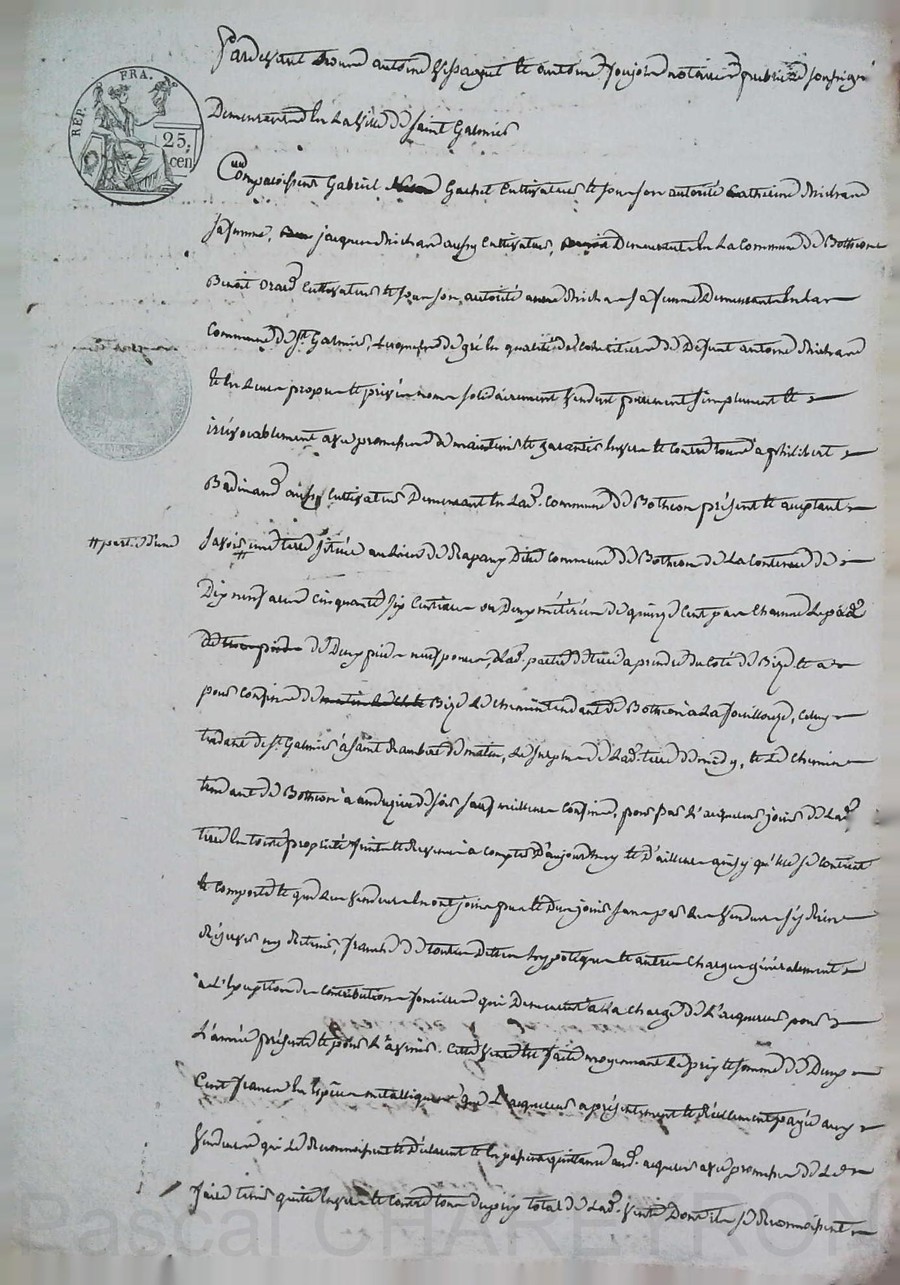 REP. FRA.
25
cen
Pardevant nous antoine et antoine notaires publics soussignés
Demeurant en La Ville de Saint Galmier
Comparoissent Gabriel Gachet Cultivateur et sous son autorité Catherine Michard
Sa femme, jacques Michard aussy Cultivateur, Demeurant en La Commune de Botheon
Benoit Cultivateur et sous son autorité Michard Sa femme Demeurant en La
Commune de St. Galmier, Lesquels de gré en qualité de Cohéritiers de Defunt antoine Michard
et en Leurs propres et privés noms solidairement Vendent purement simplement et
irrévocablement avec promesse de maintenir et garantir Envers et contre tous à philibert
Badinand aussy Cultivateur Demeurant en Lad. Commune de Botheon présent et acceptant
# partie d'une
Savoir # une terre Située au Lieu de Commune de Botheon de La Contenue de
Dix neuf ares Cinquante Six Centiares ou Deux métérées de quinze Cent pas Chacune Le pas
de Deux pieds neuf pouces, Lad. partie de terre a prendre du coté de Bize et a
pour Confins de Bize Le chemin tendant de Botheon à La fouillouse, Celuy
tendant de St. Galmier à Saint Rambert de matin, Le Surplus de Lad. terre de midy, et Le Chemin
tendant de Botheon à andrezieu de soir sauf meilleurs Confins, pour par L'acquereur jouir de Lad.
terre en toute propriété et Revenus à Compter D'aujourdhuy et D'ailleurs ainsy qu'elle se Contient
et Comporte et que Les Vendeurs en ont joui pu et Du jouir sans par Les Vendeurs s'y Rien
Réserver ny Retenir, franche de toutes Dettes hypotèques et autres Charges généralement
à L'Exception des Contributions foncières qui Demeurent à La Charge de L'acquereur pour
L'année présente et pour L'avenir. Cette Vente est faite moyennant Le prix et somme de Deux
Cent francs En Espèces métalliques que L'acquereur a présentement et Réellement payée aux
Vendeurs qui Le Reconnoissent et Déclarent et en passent quittance aud. acquereur avec promesse de Le
faire tenir quitte Envers et Contre tous du prix total de Lad. Vente Dont ils se Reconnoissent
Pascal CHAREYRON